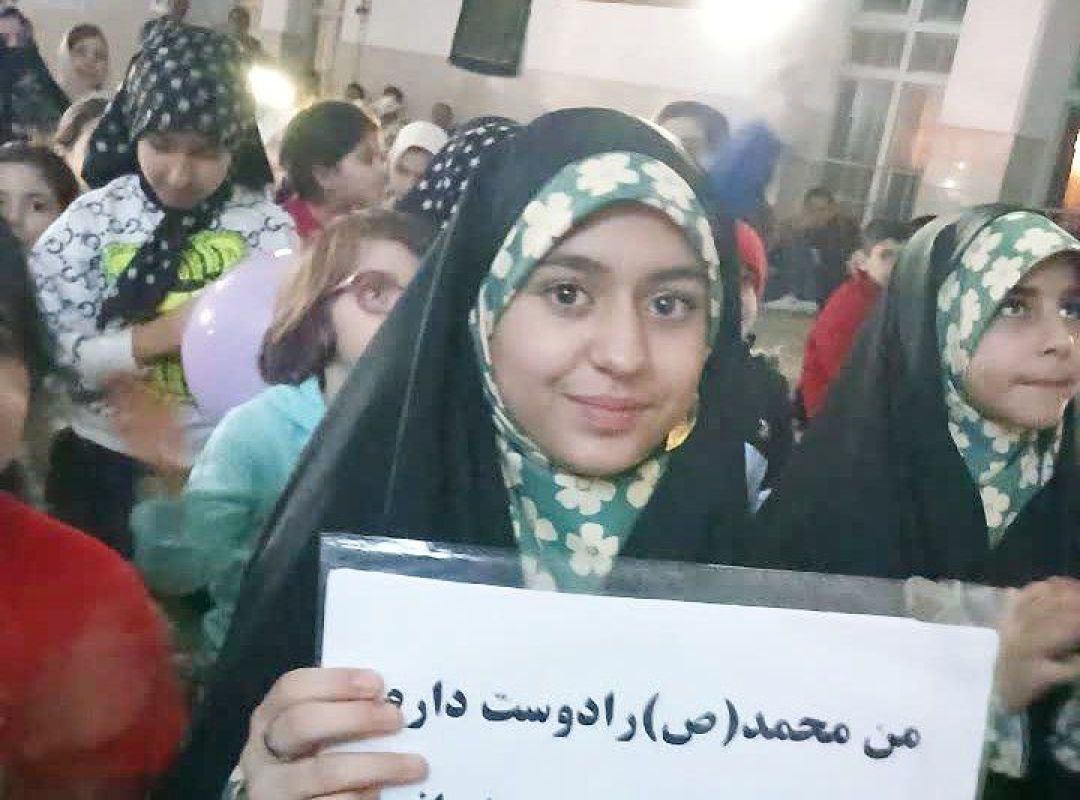 من محمد(ص)رادوست دارم